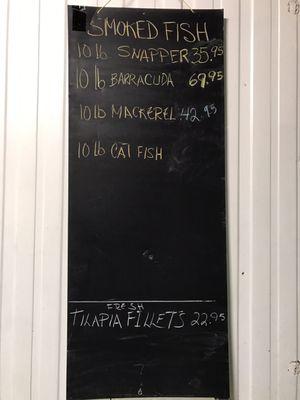 SMOKED FISH
10 lb SNAPPER 35.95
10 lb BARRACUDA 69.95
10 lb MACKEREL 42.95
10 lb CAT FISH
FRESH
TILAPIA FILLETS 22.95